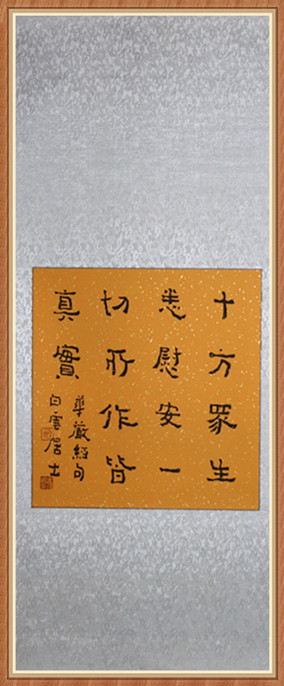 十方眾生
悉慰安一
切所作皆
真實
華嚴經句
白雲居士